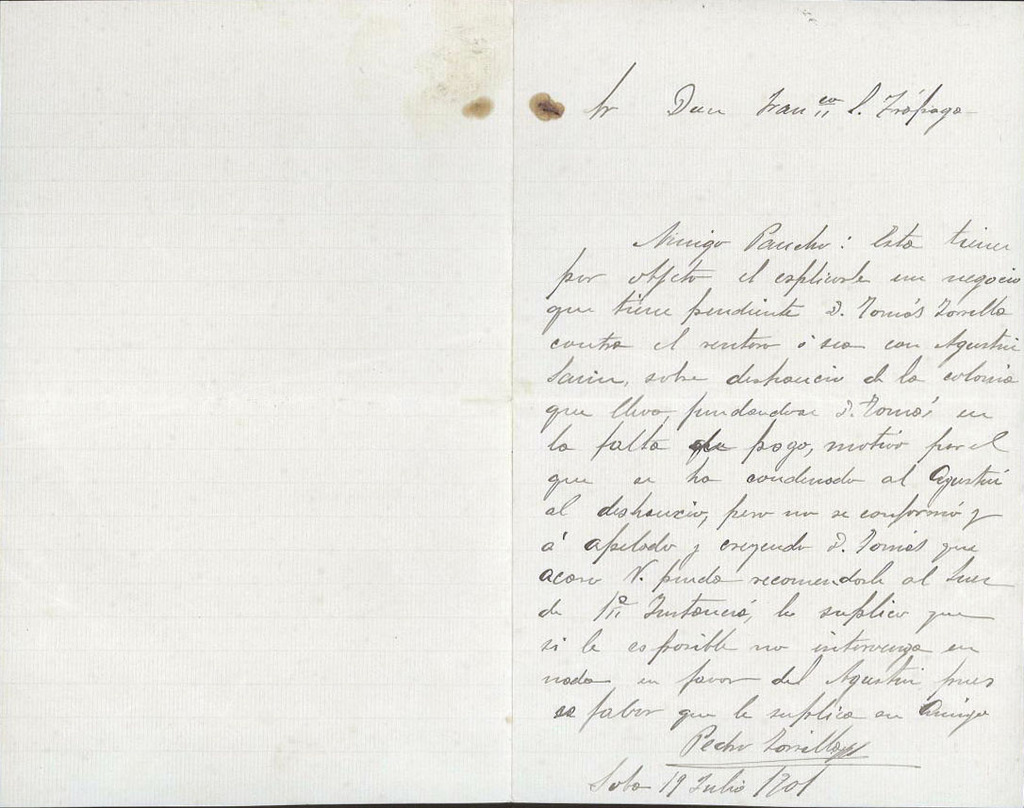 Sr Don Fran.co S. Trápaga
Amigo Pancho: Esta tiene
por objeto el esplicarle un negocio
que tiene pendiente D. Tomás Zorrilla
contra el rentero ó sea con Agustin
Sainz, sobre deshaucio de la colonia
que lleva, fundandose D. Tomás en
la falta de pago, motivo por el
que se ha condenado al Agustin
al deshaucio, pero no se conformó y
á apelado y creyendo D. Tomás que
acaso V. pueda recomendarle al Juez
de 1ª Instancia, le suplico que
si le es posible no intervenga en
nada en favor del Agustin pues
es fabor que le suplica su Amigo
Pedro Zorrilla
Soba 19 Julio 1901